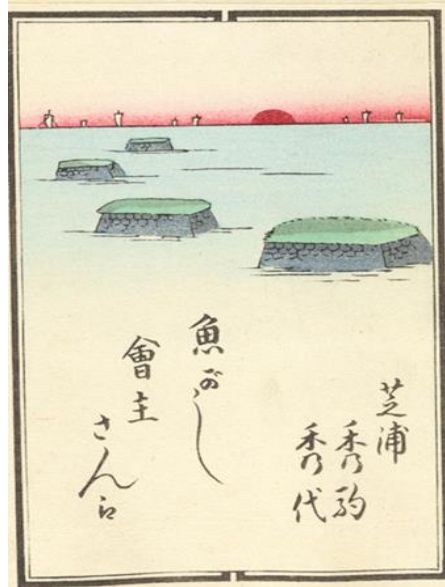 芝浦
秀駒
秀代
魚がし
會主
さん台